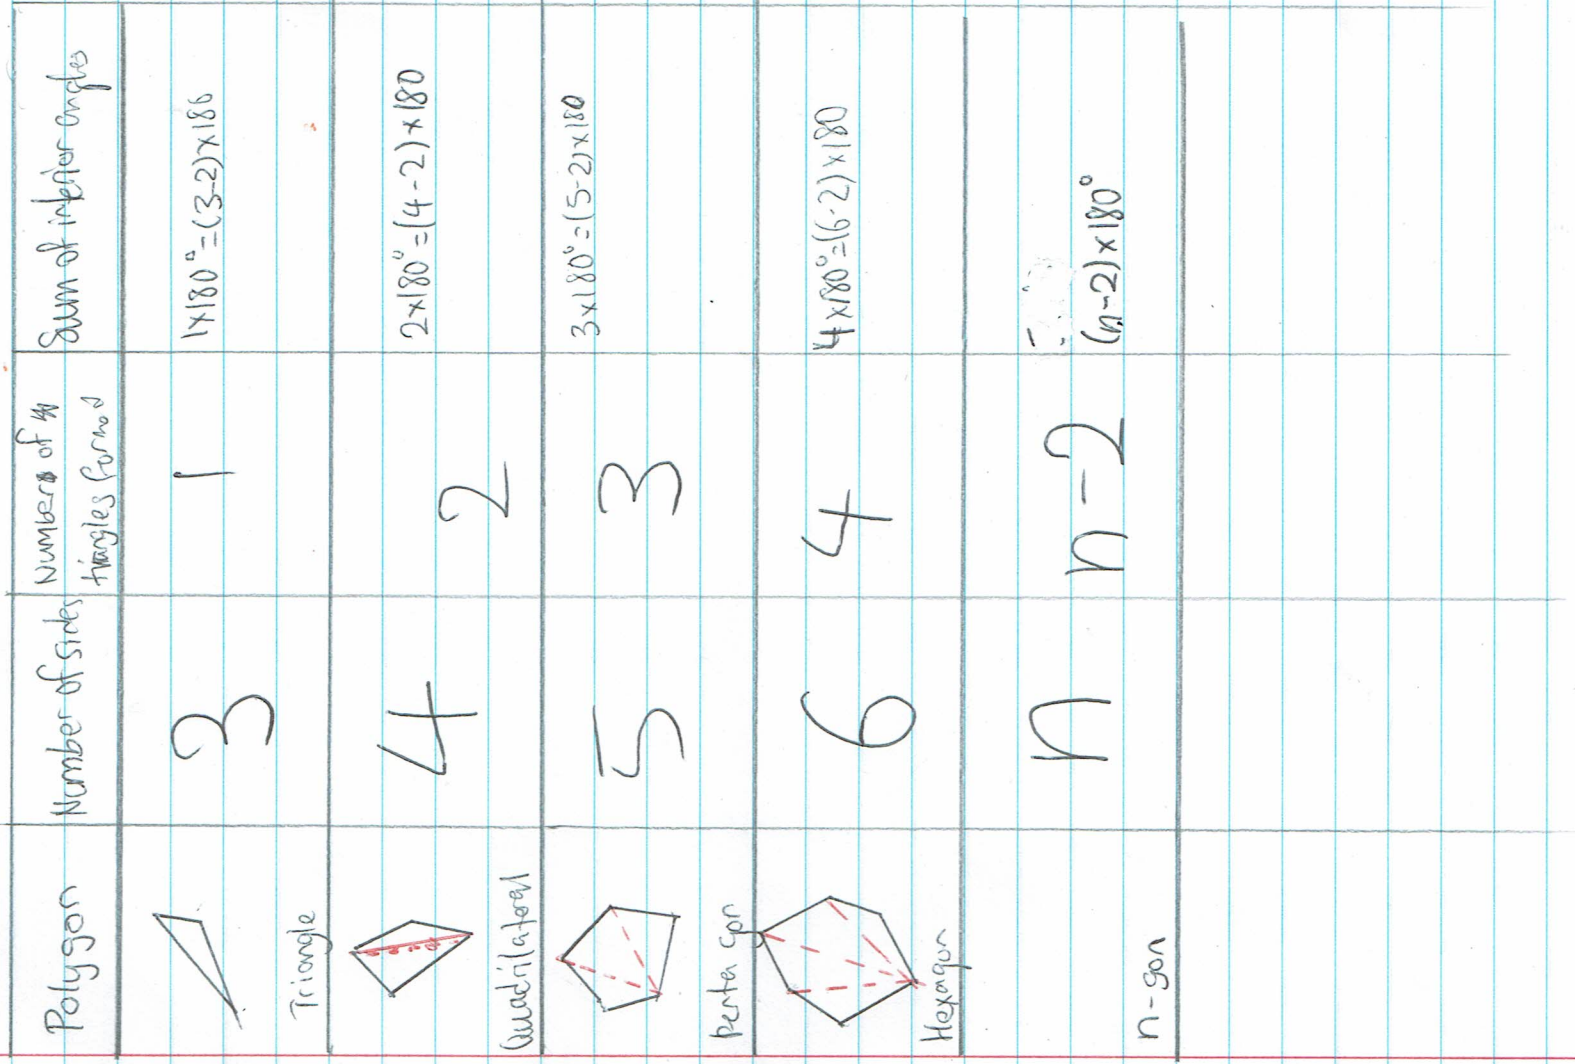 Polygon Number of sides Numbers of triangles formed Sum of interior angles
Triangle 3 1 1x180°=(3-2)x180
Quadrilateral 4 2 2x180°=(4-2)x180
pentagon 5 3 3x180°=(5-2)x180
Hexagon 6 4 4x180°=(6-2)x180
n-gon n n-2 (n-2)x180°